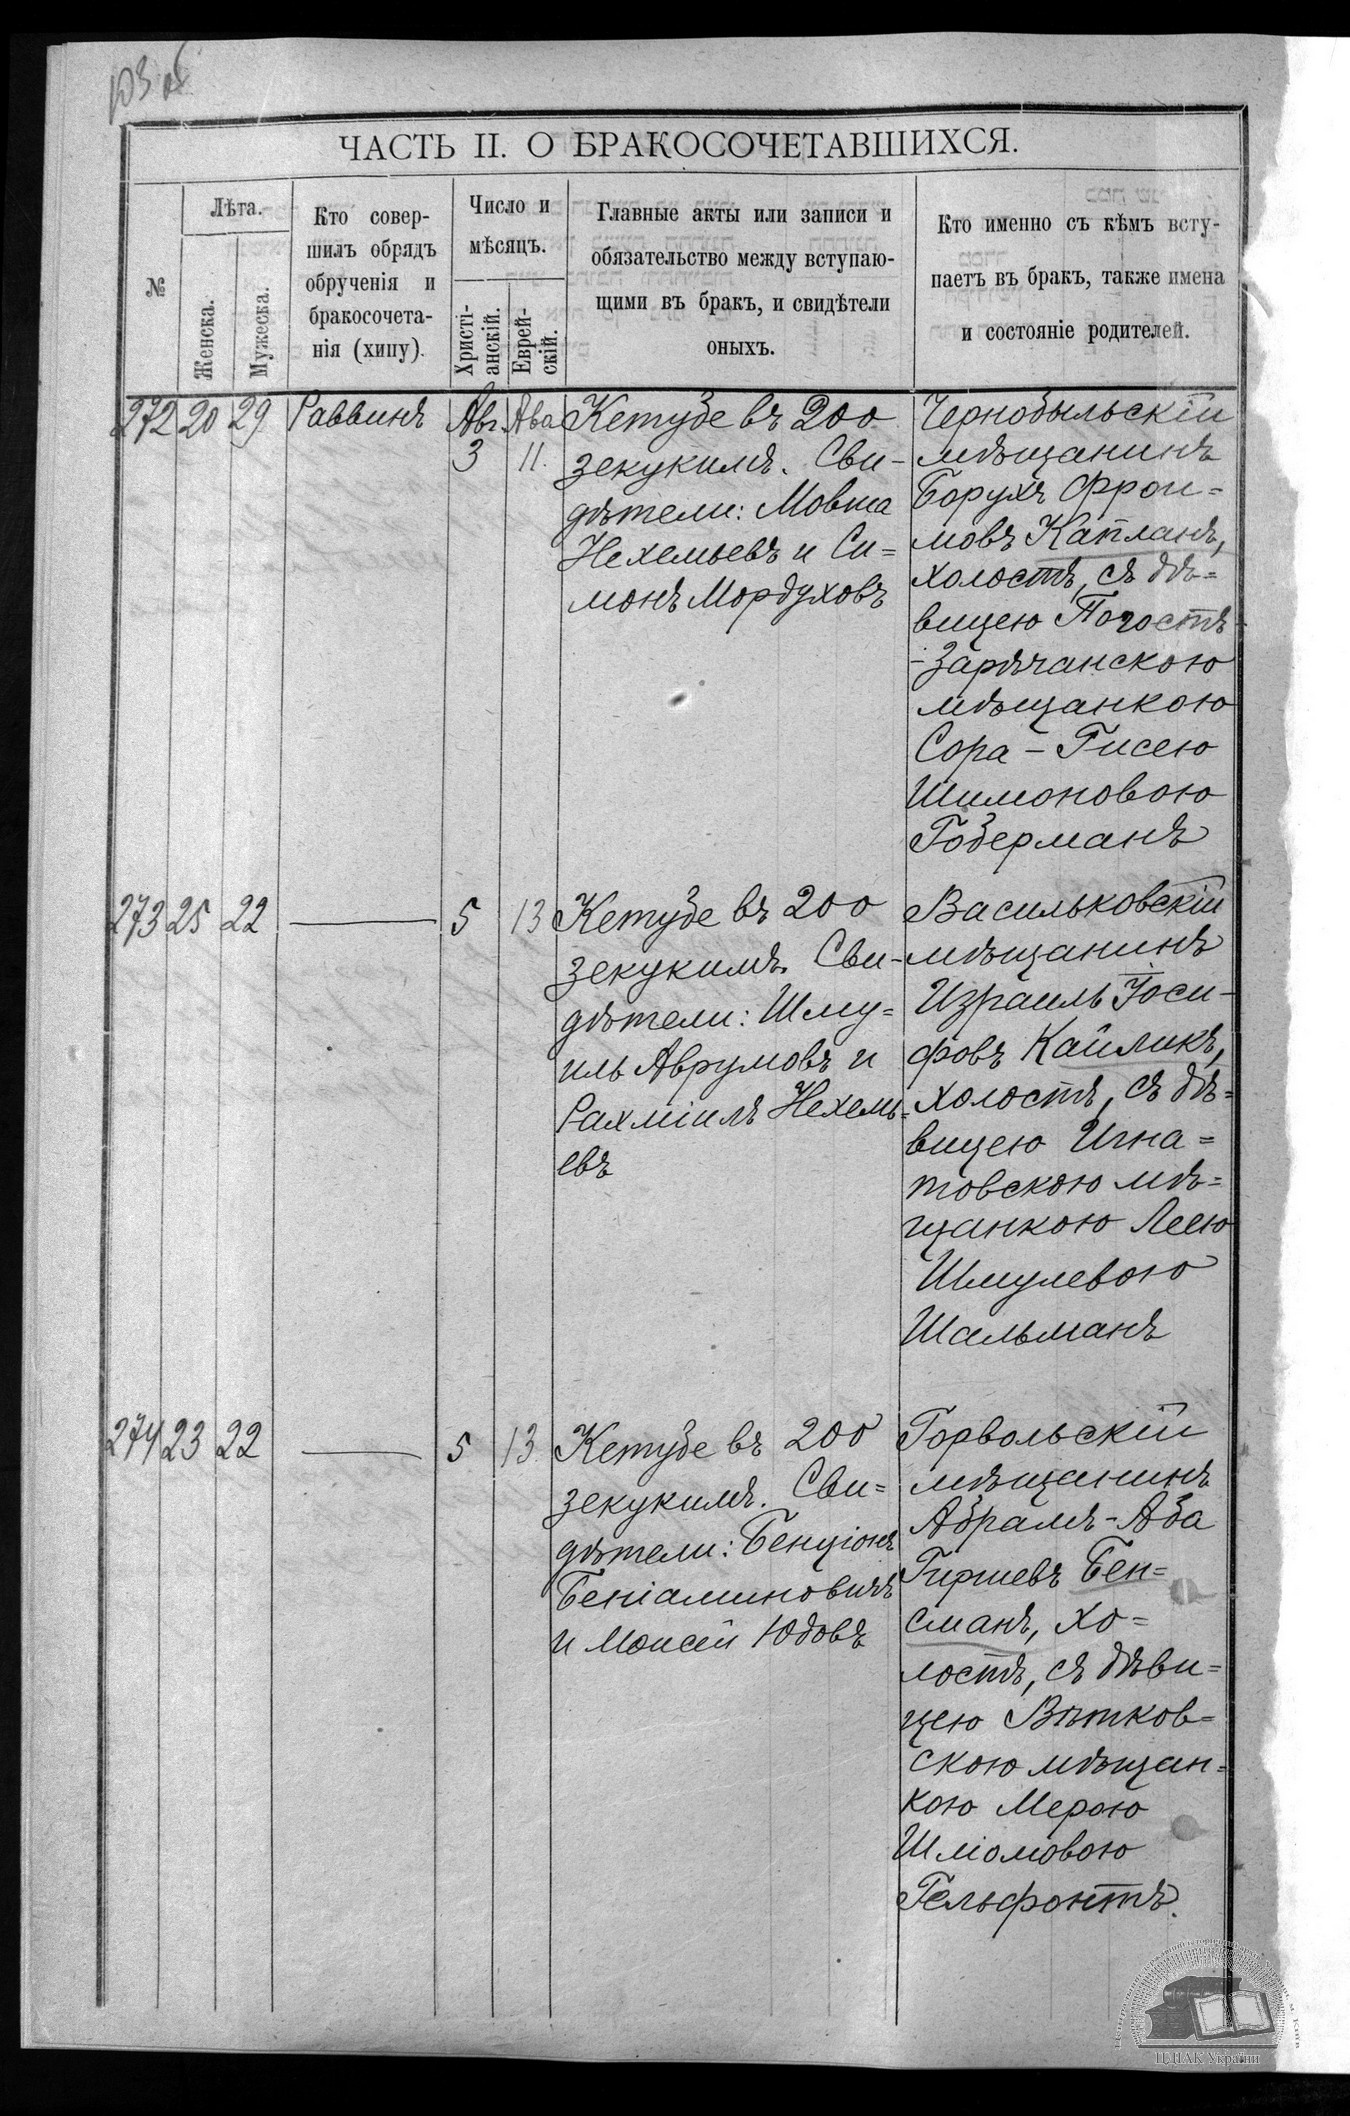 103 об
ЧАСТЬ II. О БРАКОСОЧЕТАВШИХСЯ.
№
Лѣта.
Женска.
Мужеска.
Кто совер-
шилъ обрядъ
обрученія и
бракосочета-
нія (хипу).
Число и
мѣсяцъ.
Христі-
анскій.
Еврей-
скій.
Главные акты или записи и
обязательство между вступаю-
щими въ бракъ, и свидѣтели
оныхъ.
Кто именно съ кѣмъ всту-
паетъ въ бракъ, также имена
и состояніе родителей.
272 20 29 Раввинъ Авг. 3 Ава 11.
Кетубе въ 200
зекукимъ. Сви-
дѣтели: Мовша
Нехемьевъ и Си=
монъ Мордуховъ
Чернобыльскій
мѣщанинъ
Борухъ Фрои=
мовъ Капланъ,
холостъ, съ дѣ=
вицею Погостъ-
-Зарѣчанскою
мѣщанкою
Сора - Гисею
Шимоновою
Гоберманъ
273 25 22 — 5 13
Кетубе въ 200
зекукимъ. Сви-
дѣтели: Шму=
иль Аврумовъ и
Рахміилъ Нехемь=
евъ
Васильковскій
мѣщанинъ
Израиль Іоси-
фовъ Кайликъ,
холостъ, съ дѣ=
вицею Игна=
товскою мѣ=
щанкою Леею
Шмулевою
Шальманъ
274 23 22 — 5 13
Кетубе въ 200
зекукимъ. Сви=
дѣтели: Бенціонъ
Беніаминовичъ
и Моисей Юдовъ
Горвольскій
мѣщанинъ
Абрамъ-Аба
Гиршевъ Бен=
сманъ, хо=
лостъ, съ дѣви=
цею Вѣтков=
скою мѣщан=
кою Мерою
Шліомовою
Гельфонтъ.
ЦДІАК України